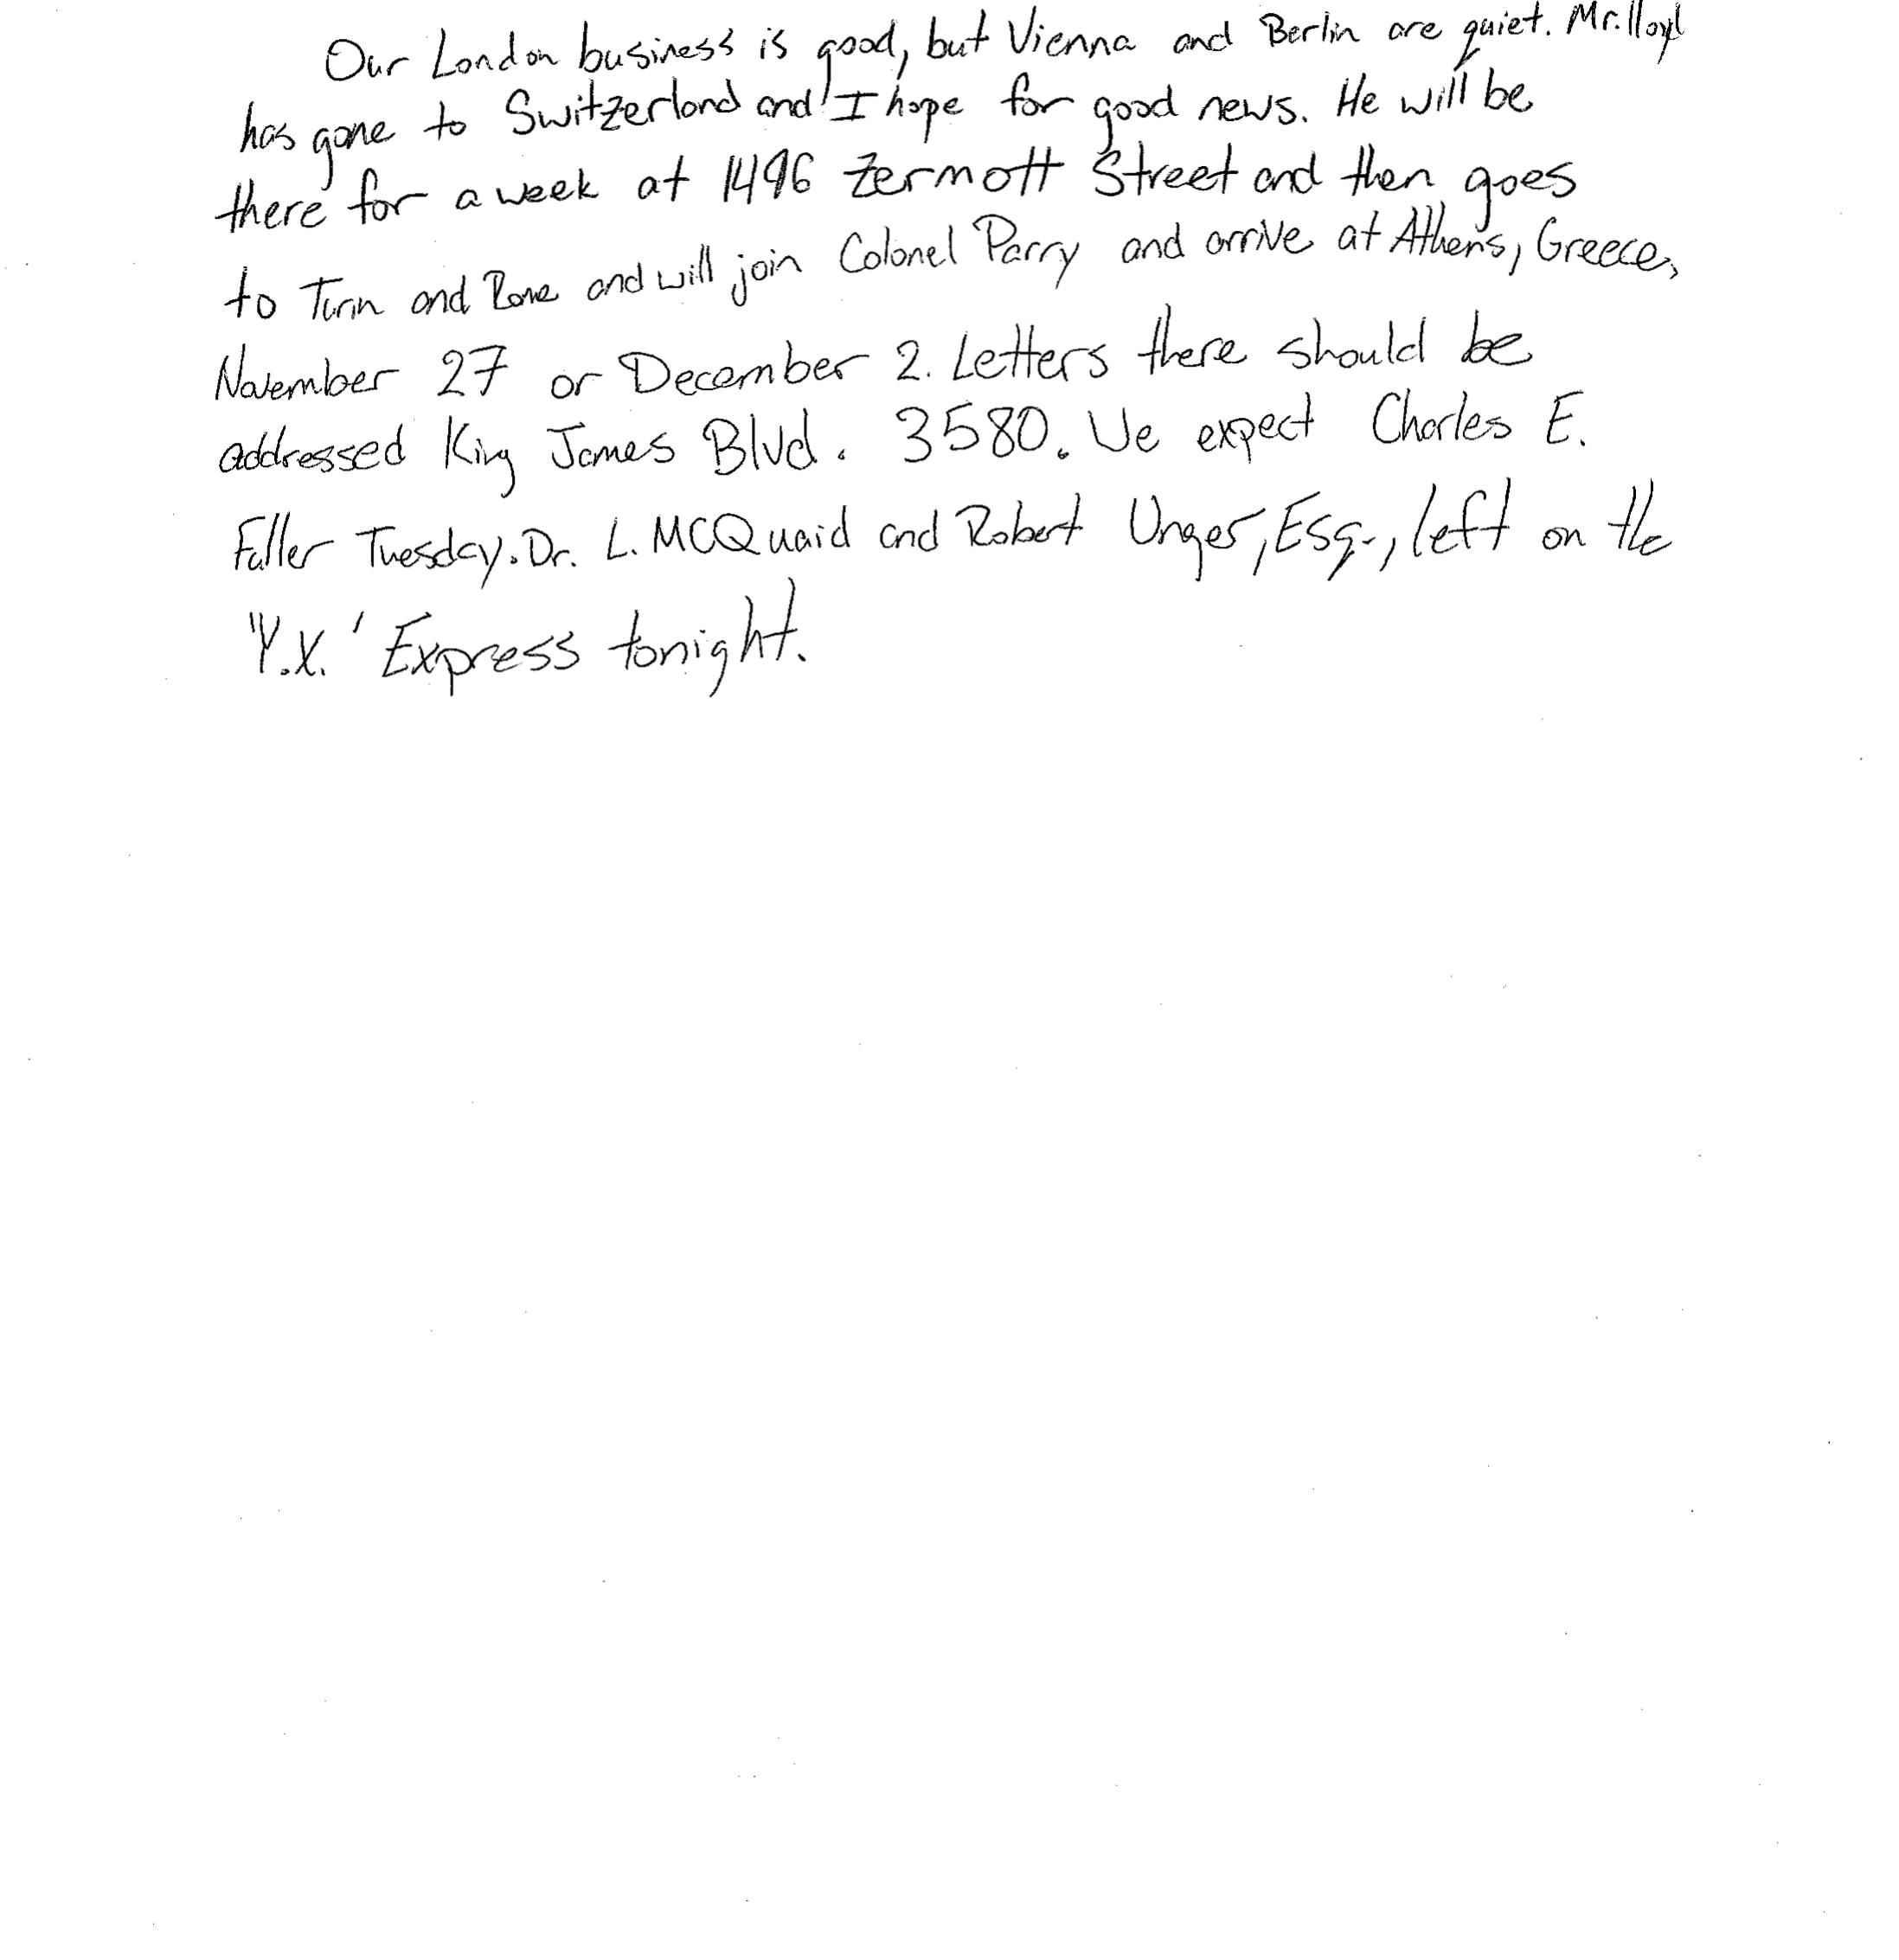 Our London business is good, but Vienna and Berlin are quiet. Mr. lloyd
has gone to Switzerland and I hope for good news. He will be
there for a week at 1496 Zermott Street and then goes
to Turin and Rome and will join Colonel Parry and arrive at Athens, Greece,
November 27 or December 2. Letters there should be
addressed King James Blvd. 3580. We expect Charles E.
Fuller Tuesday. Dr. L. MCQuaid and Robert Unger, Esq., left on the
"Y.X.' Express tonight.